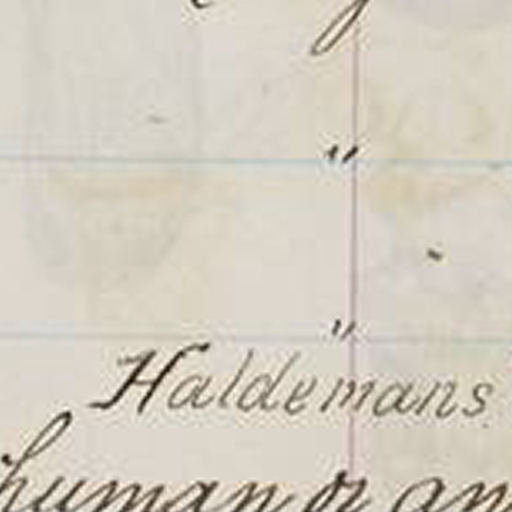 "
"
Haldemans
human or an